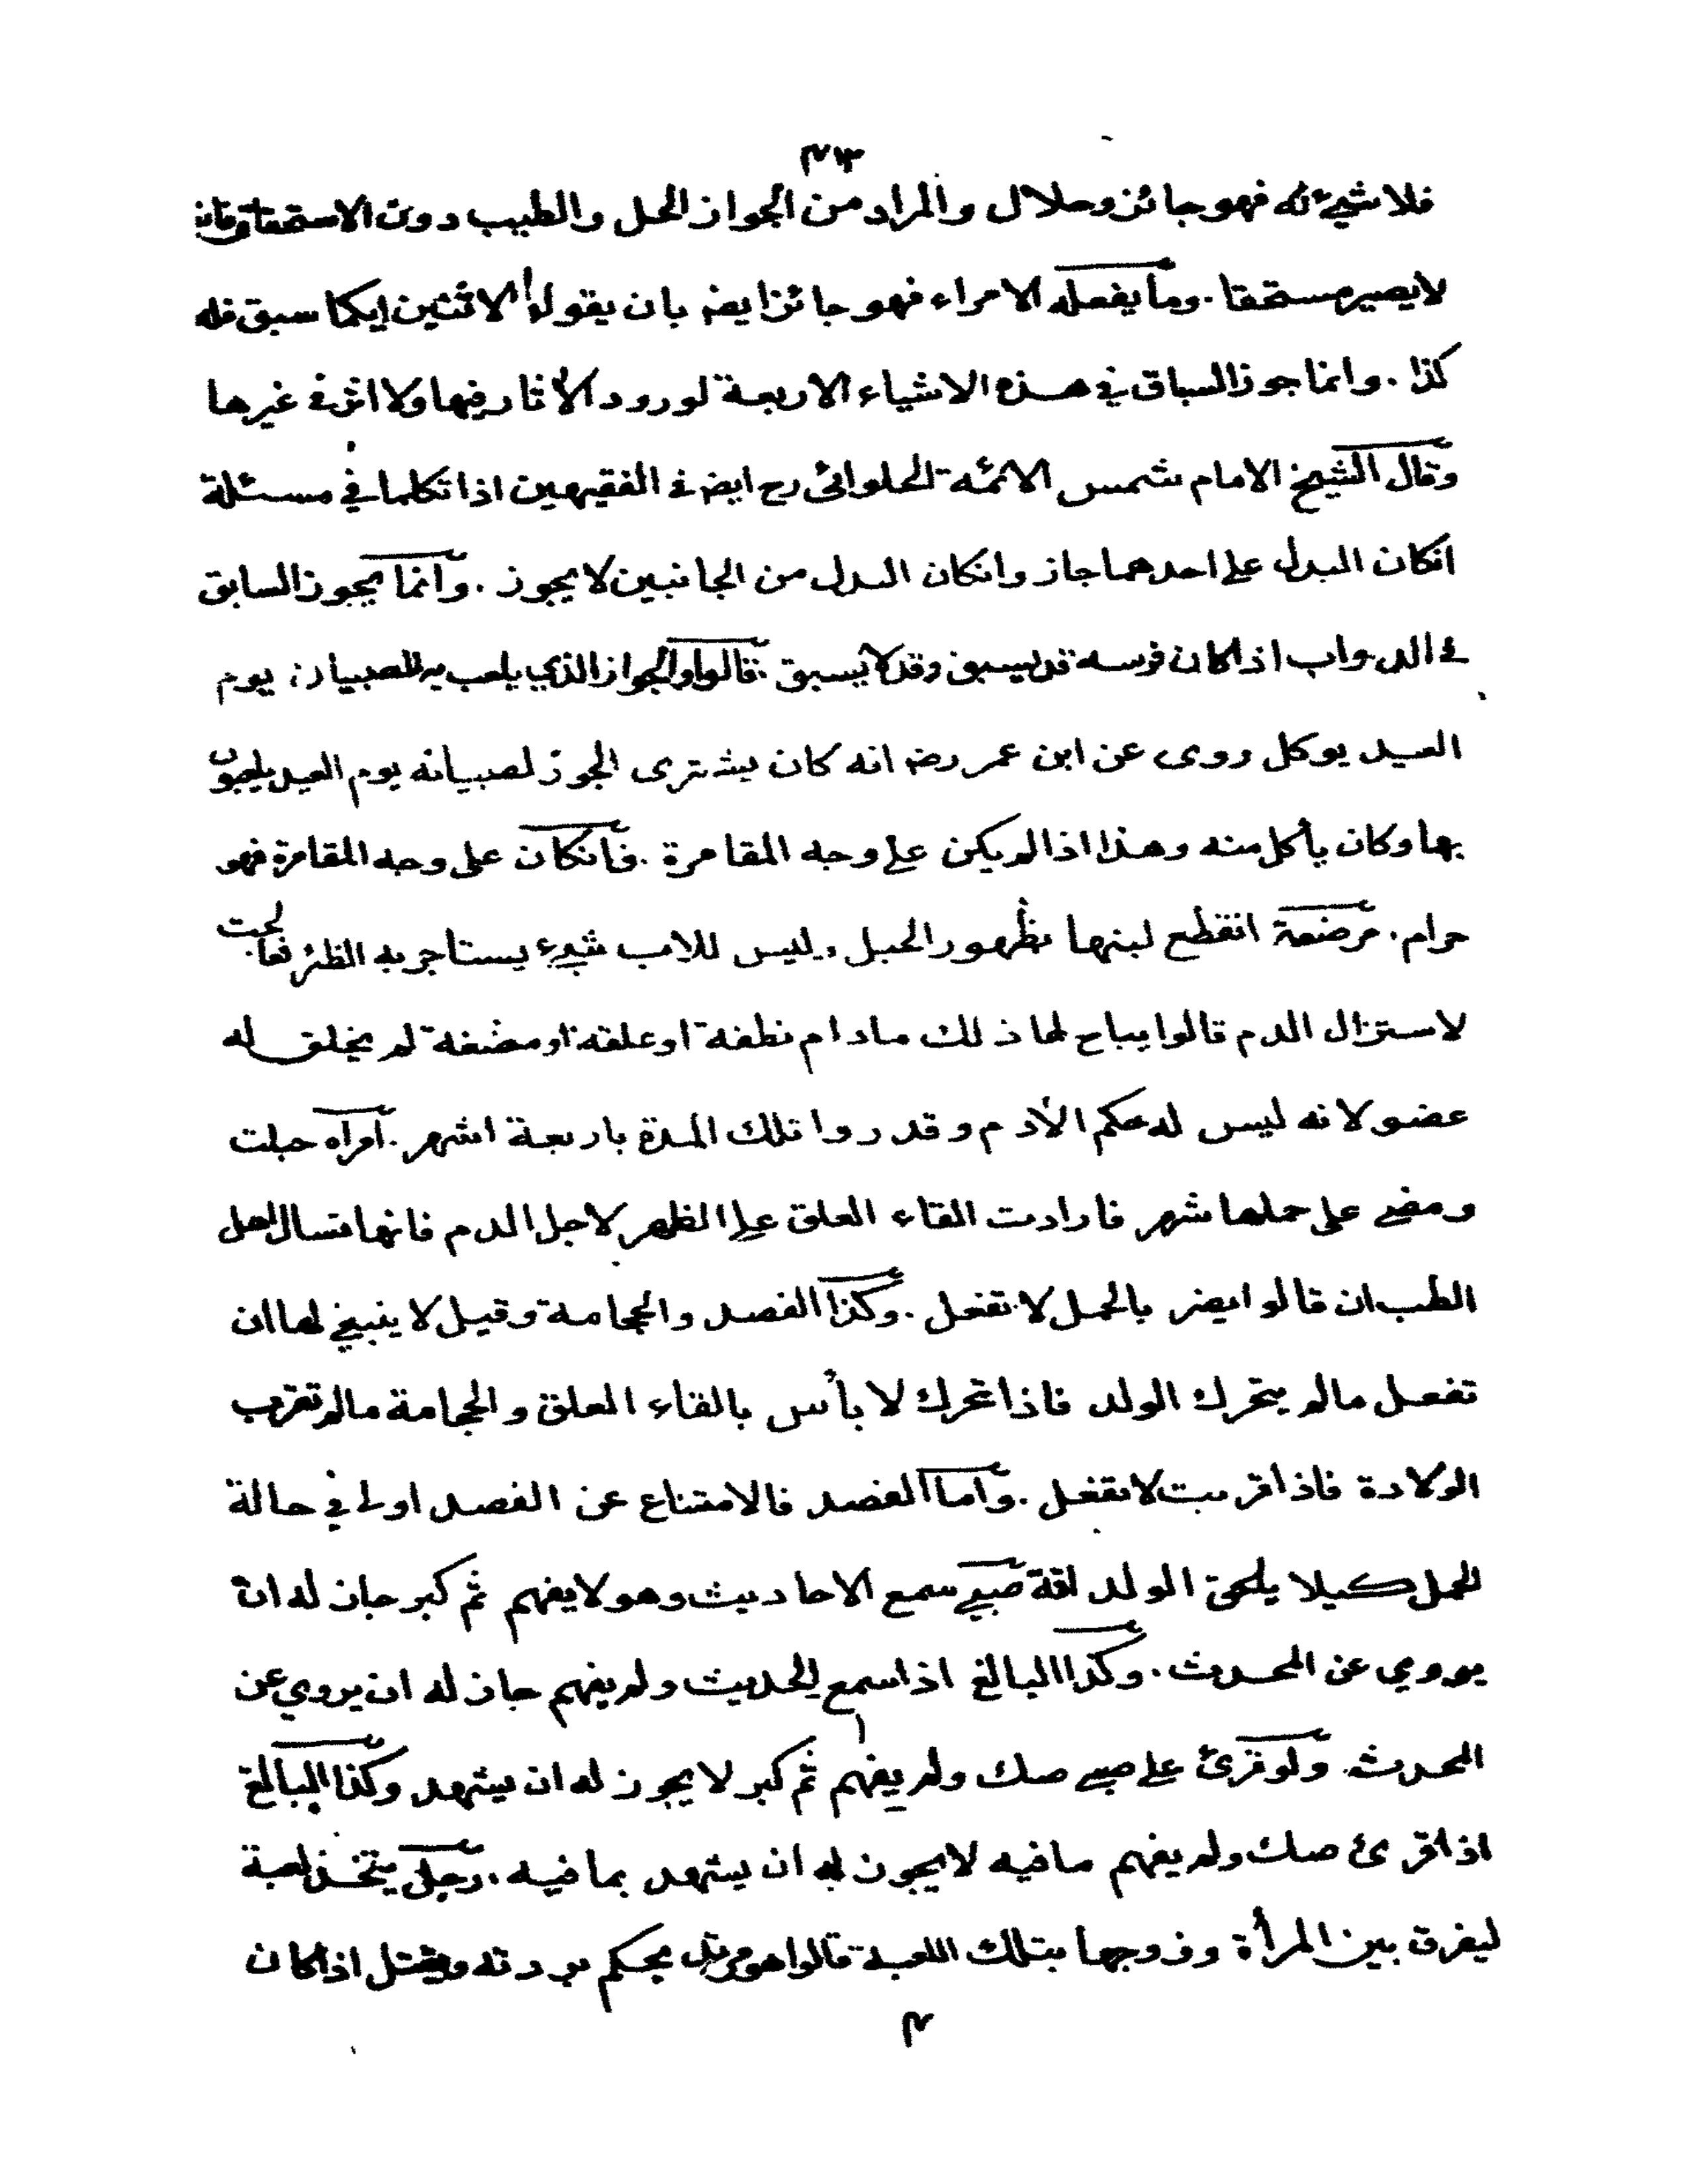 ٣١٣
فلا شيء له فهو جائز وحلال والمراد من الجواز الحل والطيب دون الاستحقاق فانه
لا يصير مستحقا . وما يفعله الامراء فهو جائز ايضه بان يقولوا لاثنين ايكما سبق فله
كذا . وانما جوز السباق في هذه الاشياء الاربعة لورود الأثار فيها ولا اثر في غيرها
وقال الشيخ الامام شمس الائمة الحلوائى رح ايضه في الفقيهين اذا تكلما في مسئلة
انكان البدل على احدهما جاز وانكان البدل من الجانبين لا يجوز . وانما يجوز السابق
في الدواب اذا كان فرسه قد يسبق وقد لا يسبق . قالوا والجواز الذي يلعب به الصبيان يوم
العيد يوكل روى عن ابن عمر رضه انه كان يشترى الجوز لصبيانه يوم العيد يلعبون
بها وكان يأكل منه وهذا اذا لم يكن على وجه المقامرة . فانكان على وجه المقامرة فهو
حرام . مرضعة انقطع لبنها بظهور الحبل وليس للاب شيء يستاجر به الظئر فعالجت
لاستنزال الدم قالوا يباح لها ذلك مادام نطفة او علقة او مضغة لم يخلق له
عضو لانه ليس له حكم الأدم وقدروا تلك المدة باربعة اشهر . امرأه حبلت
ومضى على حملها شهر فارادت القاء العلق على الظهر لاجل الدم فانها تسال اهل
الطب ان قالوا يضر بالحمل لا تفعل . وكذا الفصد والحجامة وقيل لا ينبغي لها ان
تفعل مالم يتحرك الولد فاذا تحرك لا بأس بالقاء العلق والحجامة مالم تقرب
الولادة فاذا قربت لا تفعل . واما الفصد فالامتناع عن الفصد اولى في حالة
الحمل كيلا يلحق الولد افة صبي سمع الاحاديث وهو لا يفهم ثم كبر جاز له ان
يروي عن المحدث . وكذا البالغ اذا سمع الحديث ولم يفهم جاز له ان يروي عن
المحدث . ولو قرئ على صبي صك ولم يفهم ثم كبر لا يجوز له ان يشهد وكذا البالغ
اذا قرئ صك ولم يفهم مافيه لا يجوز له ان يشهد بما فيه . رجل يتخذ لعبة
ليفرق بين المرأة وزوجها بتلك اللعبة قالوا هو مرتد يحكم بردته ويقتل اذا كان